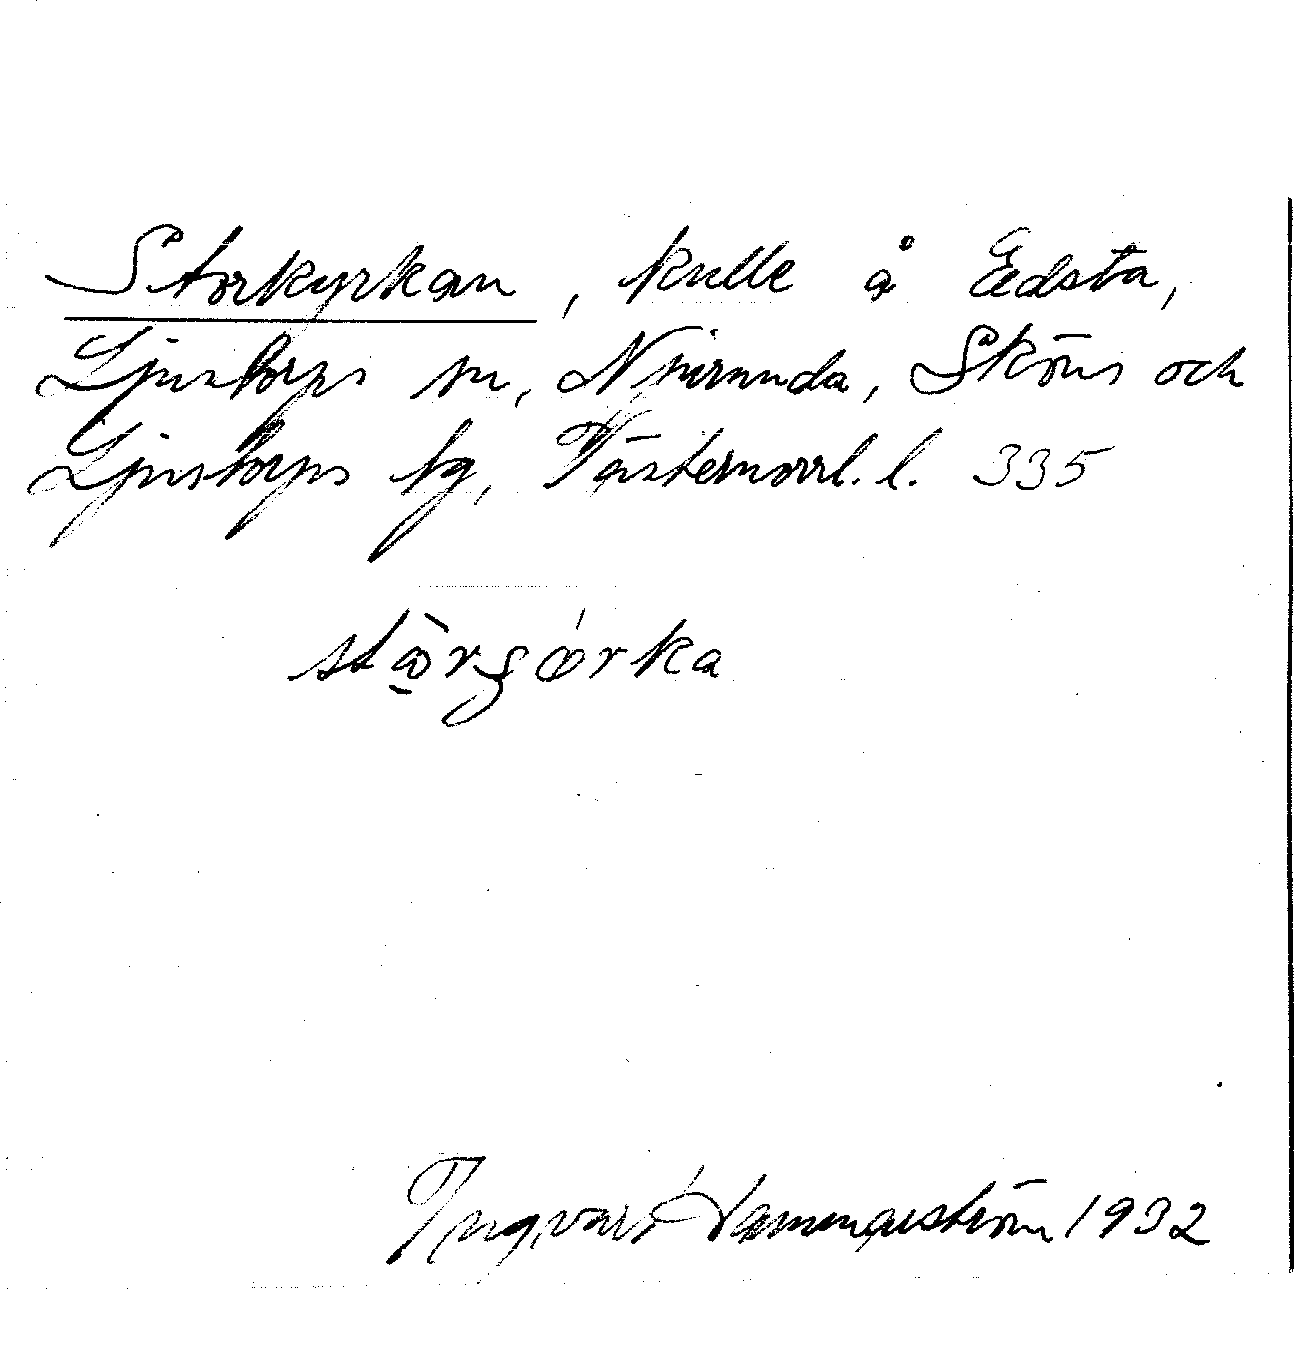 Storkyrkan, kulle å Edsta,
Ljustorps sn, Njurunda, Sköns och
Ljustorps tg, Västernorrl. l. 335
Ingvar 1932